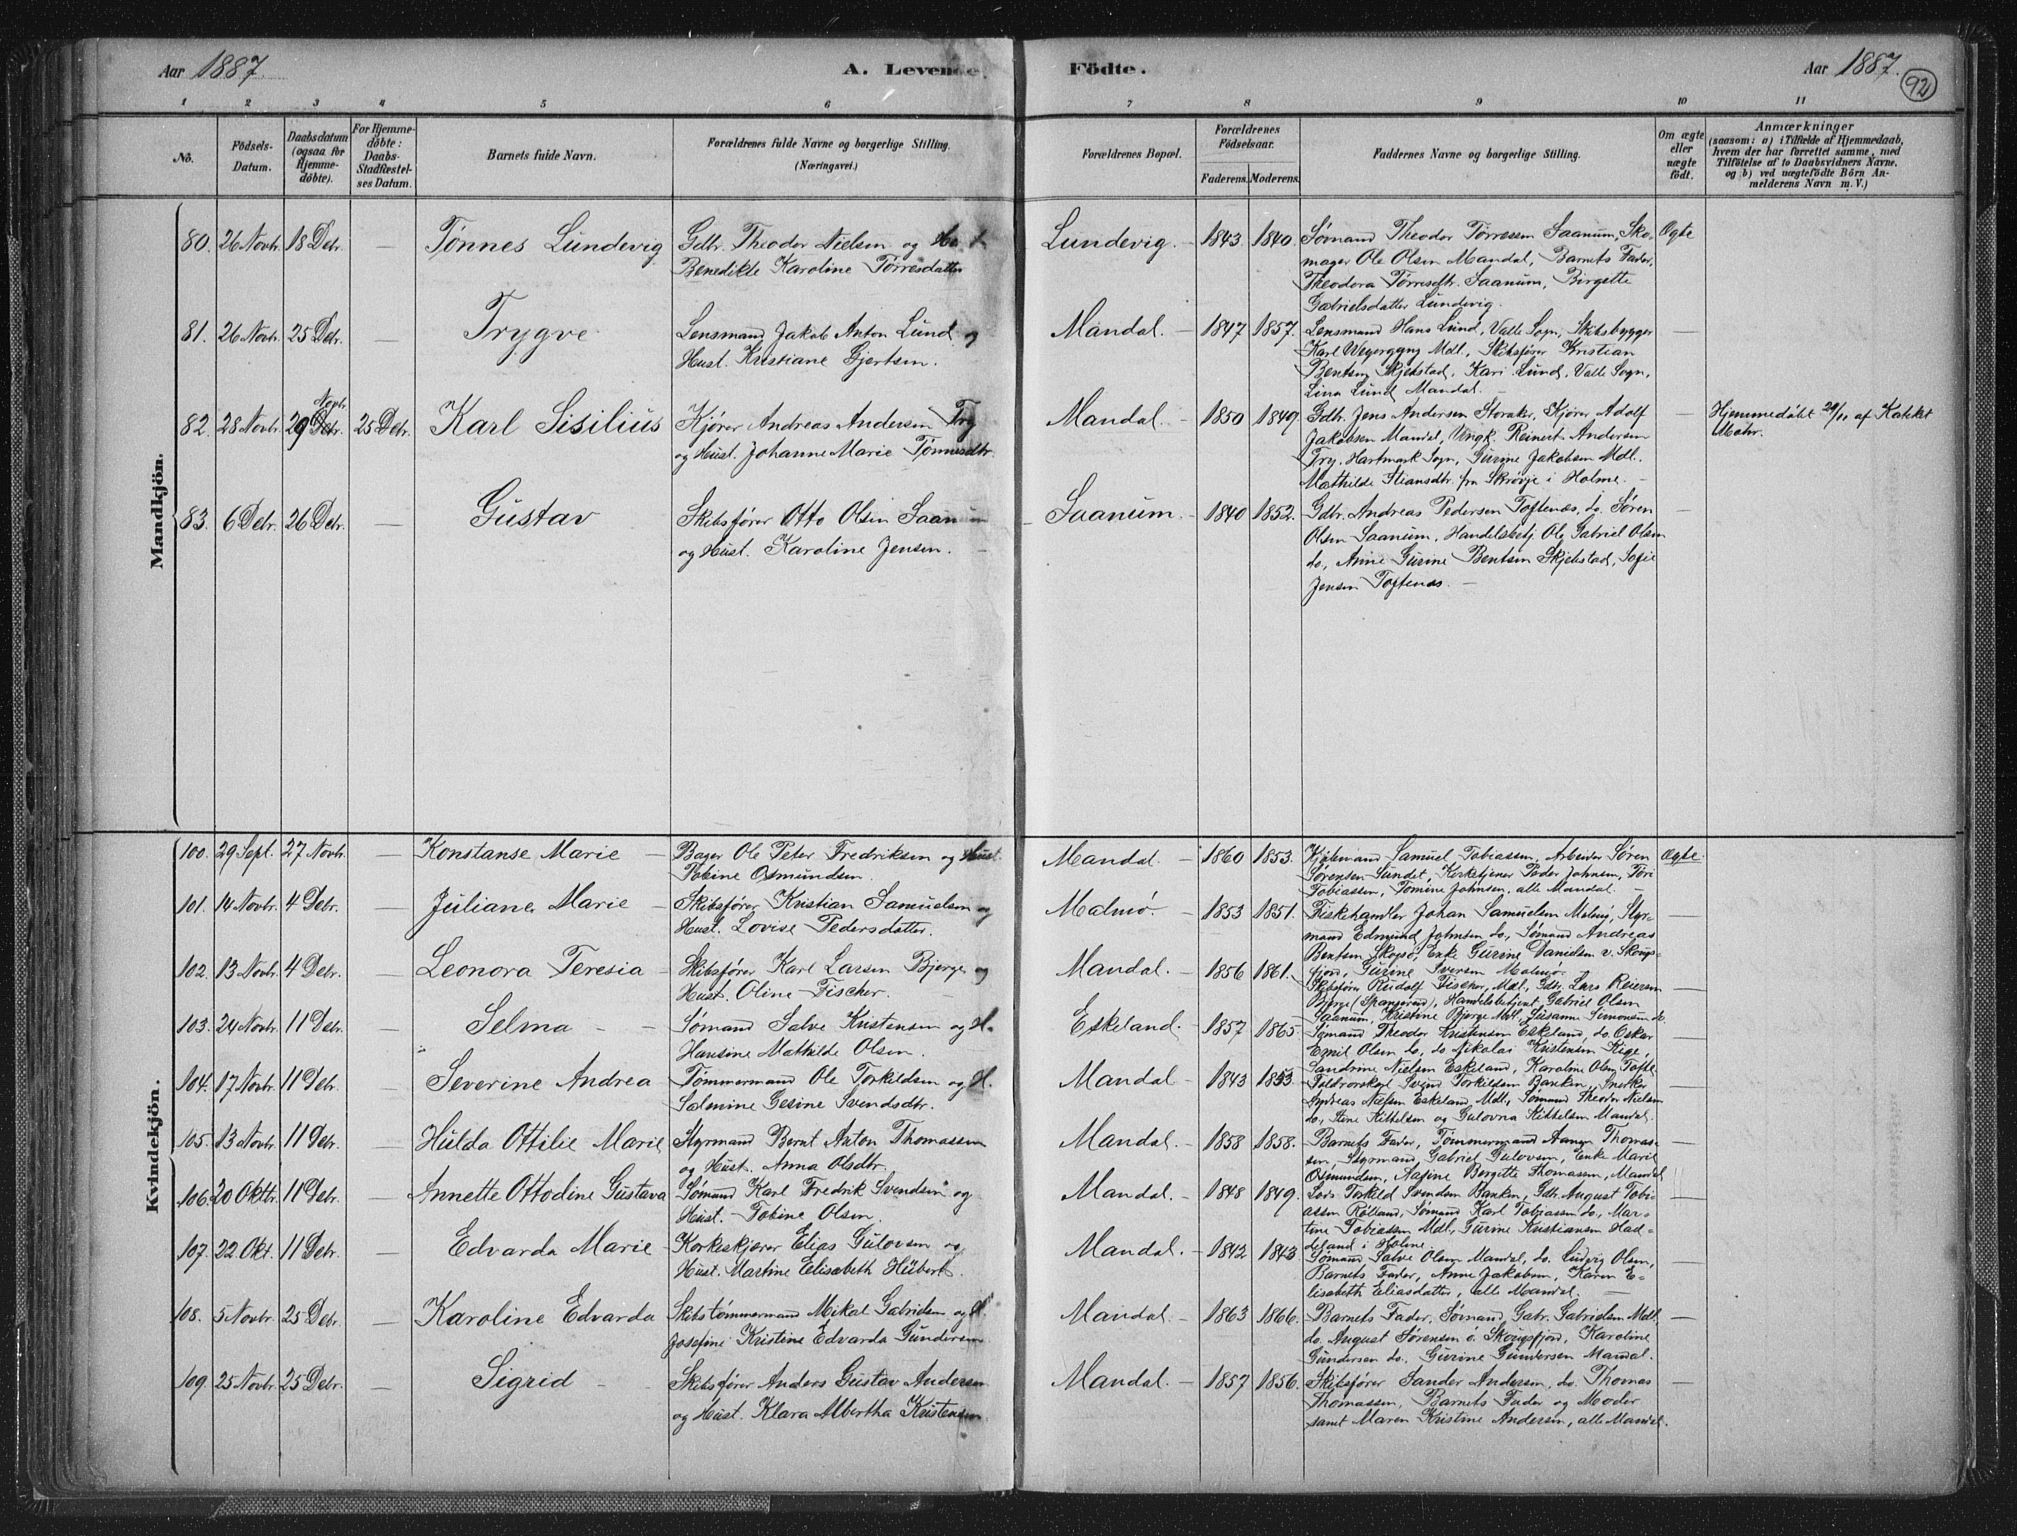 Aar 1887.
A. Levende Födte.
Aar 1887.
92
1 2 3 4 5 6 7 8 9 10 11
No.
Födsels-Datum.
Daabsdatum (ogsaa for Hjemme-döbte).
For Hjemme-döbte: Daabs-Stadfæstel-ses Datum.
Barnets fulde Navn.
Forældrenes fulde Navne og borgerlige Stilling.
(Næringsvei.)
Forældrenes Bopæl.
Forældrenes Födselsaar.
Faderens. Moderens.
Faddernes Navne og borgerlige Stilling.
Om ægte eller uægte födt.
Anmærkninger
(saasom: a) i Tilfælde af Hjemmedaab,
hvem der har forrettet samme, med
Tilföielse af to Daabsvidners Navne.
og b) ved uægtefödte Börn An-
melderens Navn m. V.)
Mandkjön.
80. 26 Novbr. 18 Debr. — Tønnes Lundevig Gdbr. Theodor Nielsen og
Benedikte Karoline Tørresdatter
Lundevig. 1843. 1840. Sømand Theodor Tørressen Saanum, Sko-
mager Ole Olsen Mandal, Barnets Fader,
Theodora Tørresdtr. Saanum, Birgette
Gabrielsdatter Lundevig.
Ægte
81. 26 Novbr. 25 Debr. — Trygve Lensmand Jakob Anton Lund og
Hust. Kristiane Gjertsen.
Mandal. — 1847 1857. Lensmand Hans Lund, Valle Sogn, Skibsbygger
Karl Wegergang Mdl., Skibsfører Kristian
Bentsen Skjebstad, Kari Lund, Valle Sogn,
Lina Lund Mandal. —
82. 28 Novbr. 29 Novbr. 25 Debr. Karl Sisilius Kjører Andreas Andersen Try
og Hust. Johanne Marie Tønnesdtr.
Mandal. — 1850 1849. Gdbr. Jens Andersen Storaker, Kjører Adolf
Jakobsen Mandal, Ungk. Reinert Andersen
Try, Hartmark Sogn, Gurine Jakobsen Mdl.
Mathilde Stiansdtr. fra Skrøvje i Holme. —
Hjemmedøbt 29/11 af Katekt
Mohr.
83. 6 Debr. 26 Debr. — Gustav Skibsfører Otto Olsen Saanum
og Hust. Karoline Jensen. —
Saanum. — 1840 1852. Gdbr. Andreas Pedersen Toftenæs, do. Søren
Olsen Saanum, Handelsbetj. Ole Gabriel Olsen
do., Anne Gurine Bentsen Skjebstad, Sofie
Jensen Toftenæs. —
Kvindekjön.
100. 29 Sept. 27 Novbr. — Konstanse Marie — Bager Ole Peter Fredriksen og Hust.
Tobine Osmundsen.
Mandal. — 1860 1853. Kjøbmand Samuel Tobiassen, Arbeider Søren
Sørensen Sundet, Kirketjener Peder Johnsen, Tori
Tobiassen, Tomine Johnsen, alle Mandal. —
Ægte.
101. 14 Novbr. 4 Debr. — Juliane Marie — Skibsfører Kristian Samuelsen og
Hust. Lovise Pedersdatter.
Malmø. — 1853 1851. Fiskehandler Johan Samuelsen Malmø, Styr-
mand Edmund Johnsen do., Sømand Andreas
Bentsen Skogsø, Enke Gurine Danielsen v. Skougs-
fjord, Gurine Iversen Malmø.
102. 13 Novbr. 4 Debr. — Leonora Teresia — Skibsfører Karl Larsen Bjerge og
Hust. Oline Fischer. —
Mandal. — 1856 1861. Skibsfører Rudolf Fischer, Mdl., Gdbr. Lars Reiersen
Bjerge (Spangereid), Handelsbetjent Gabriel Olsen
Saanum, Kristine Bjerge Mdl. Susanne Simonsen do.
103. 24 Novbr. 11 Debr. — Selma — Sømand Salve Kristensen og H.
Hansine Mathilde Olsen.
Eskeland. — 1857 1865. Sømand Theodor Kristensen Eskeland, do. Oskar
Emil Olsen do., do. Nikolai Kristensen Kige,
Sandrine Nielsen Eskeland, Karoline Olsen
104. 17 Novbr. 11 Debr. — Severine Andrea Tømmermand Ole Torkildsen og H.
Salmine Gesine Svendsdtr.
Mandal. — 1843 1853. Toldroerskarl Svend Torkildsen Banken, Snekker
Andreas Nielsen Eskeland Mdl., Sømand Theodor Nielsen
do., Stine Kittelsen og Gulovna Kittelsen Mandal.
105. 13 Novbr. 11 Debr. — Hulda Ottilie Marie Styrmand Bernt Anton Thomassen
og Hust. Anna Olsdtr.
Mandal. — 1858 1858. Barnets Fader, Tømmermand Aanen Thomas-
sen, Styrmand Gabriel Gulovsen, Enke Marie
Osmundsen, Aasine Bergitte Thomassen, Mandal
106. 20 Oktbr. 11 Debr. — Annette Ottodine Gustava Sømand Karl Fredrik Svendsen og
Hust. Tobine Olsen.
Mandal. — 1848 1849. Lods Torkild Svendsen Banken, Gdbr. August Tobi-
assen Røiland, Sømand Karl Tobiassen do., Mar-
tine Tobiassen Mdl., Gurine Kristiansen Had-
deland i Holme.
107. 22 Okt. 11 Debr. — Edvarda Marie — Korkeskjærer Elias Gulovsen og
Hust. Martine Elisabeth Hübert.
Mandal. — 1842 1843 Sømand Salve Olsen Mandal, do. Ludvig Olsen,
Barnets Fader, Anne Jakobsen, Karen E-
lisabeth Eliasdatter, alle Mandal. —
108. 5 Novbr. 25 Debr. — Karoline Edvarda Skibstømmermand Mikal Gabrielsen og H.
Josefine Kristine Edvarda Gundersen
Mandal. — 1863 1866. Barnets Fader, Sømand Gabr. Gabrielsen Mdl.
do. August Sørensen ö. Skougsfjord, Karoline
Gundersen do., Gurine Gundersen Mandal.
109. 25 Novbr. 25 Debr. — Sigrid — Skibsfører Anders Gustav Andersen
og Hust. Klara Albertha Kristensen
Mandal. — 1857 1856. Skibsfører Sander Andersen, do. Thomas
Thomassen, Barnets Fader og Moder
samt Maren Kristine Andersen, alle Mandal.